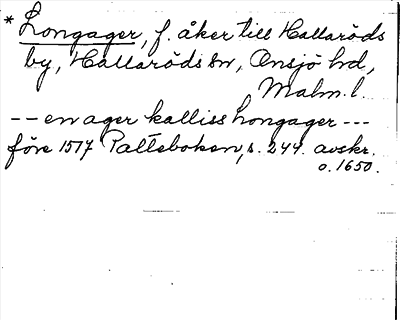 * Longager, f. åker till Hallaröds
by, Hallaröds sn, Onsjö hd,
Malm. l.
-- en ager kalliss Longager ---
före 1517 Palteboken, s. 244. avskr.
o. 1650.